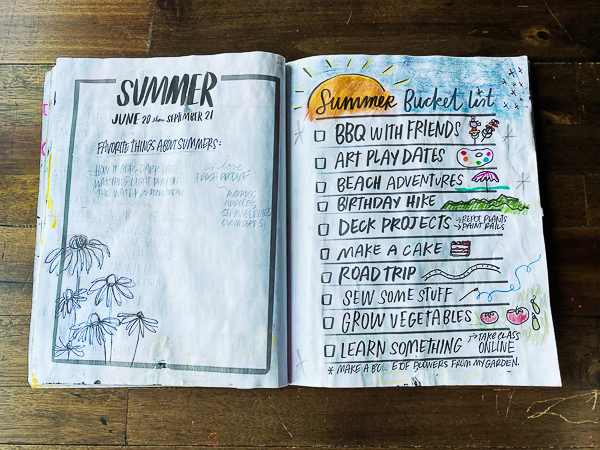 SUMMER
JUNE 20 thru SEPTEMBER 21
FAVORITE THINGS ABOUT SUMMERS:
HOW IT GETS DARK LATE
WATCHING LIGHT PLAY ON
THE WATER
LOVE
FRESH PRODUCE
TOMATOES
STRAWBERRIES
CUCUMBERS
Summer Bucket list
BBQ WITH FRIENDS
ART PLAY DATES
BEACH ADVENTURES
BIRTHDAY HIKE
DECK PROJECTS → REPOT PLANTS
→ PAINT RAILS
MAKE A CAKE
ROAD TRIP
SEW SOME STUFF
GROW VEGETABLES
LEARN SOMETHING → TAKE CLASS
ONLINE
* MAKE A OF FLOWERS FROM MY GARDEN.